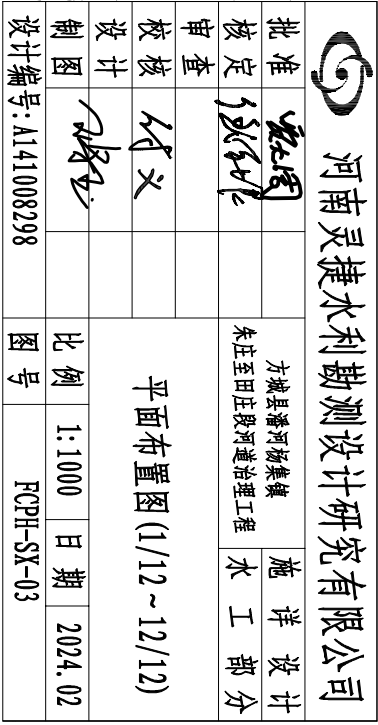 河南灵捷水利勘测设计研究有限公司
批准
核定
审查
校核
设计
制图
方城县潘河杨集镇
朱庄至田庄段河道治理工程
施详设计
水工部分
平面布置图(1/12~12/12)
比例 1:1000 日期 2024.02
设计编号:A141008298 图号 FCPH-SX-03